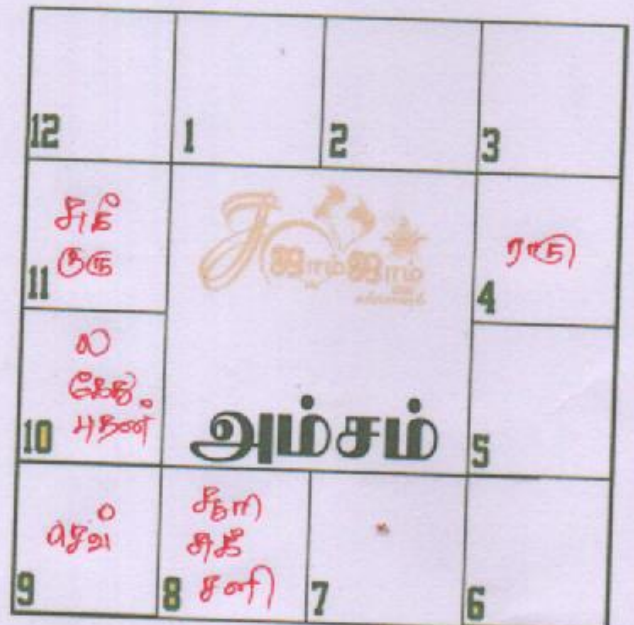 12
1
2
3
குரு
11
ஜாம்ஜாம்
ராகு
4
ல
கேது
புதன்
10
அம்சம்
5
செவ்
9
சூரி
சுக்
சனி
8
7
6